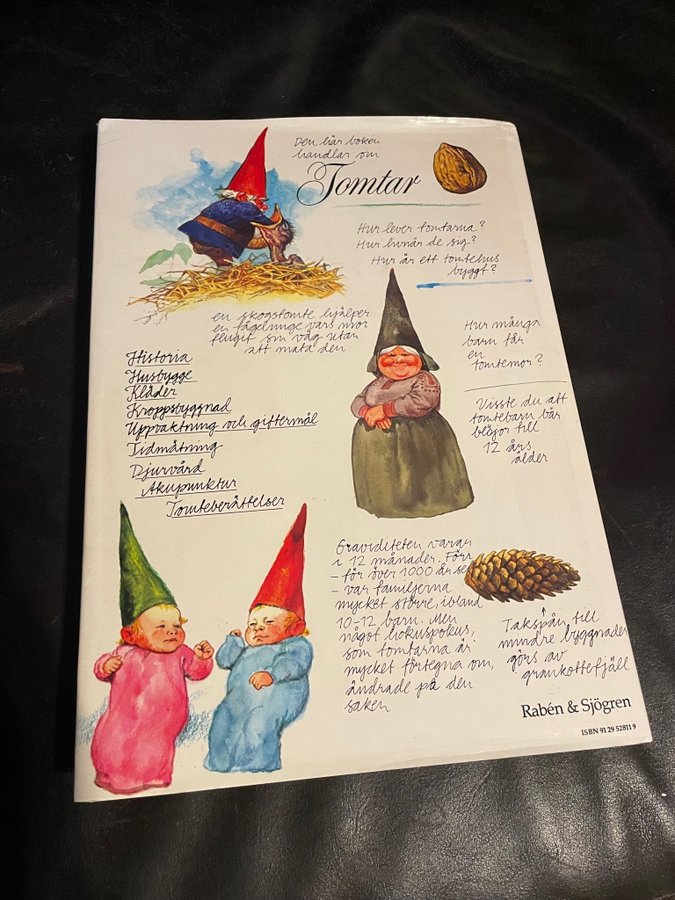 Den här boken
handlar om
Tomtar
Hur lever tomtarna?
Hur livnär de sig?
Hur är ett tomtehus
byggt?
en skogstomte hjälper
en fågelunge vars mor
flugit sin väg utan
att mata den
Hur många
barn får
en
tomtemor?
Historia
Husbygge
Kläder
Kroppsbyggnad
Uppvaktning och giftermål
Tidmätning
Djurvård
Akupunktur
Tomteberättelser
Visste du att
tomtebarn bär
blöjor till
12 års
ålder
Graviditeten varar
i 12 månader. Förr
- för över 1000 år se
- var familjerna
mycket större, ibland
10-12 barn. Men
något hokuspokus,
som tomtarna är
mycket förtegna om,
ändrade på den
saken
Takspån till
mindre byggnader
görs av
grankottefjäll
Rabén & Sjögren
ISBN 91 29 52811 9